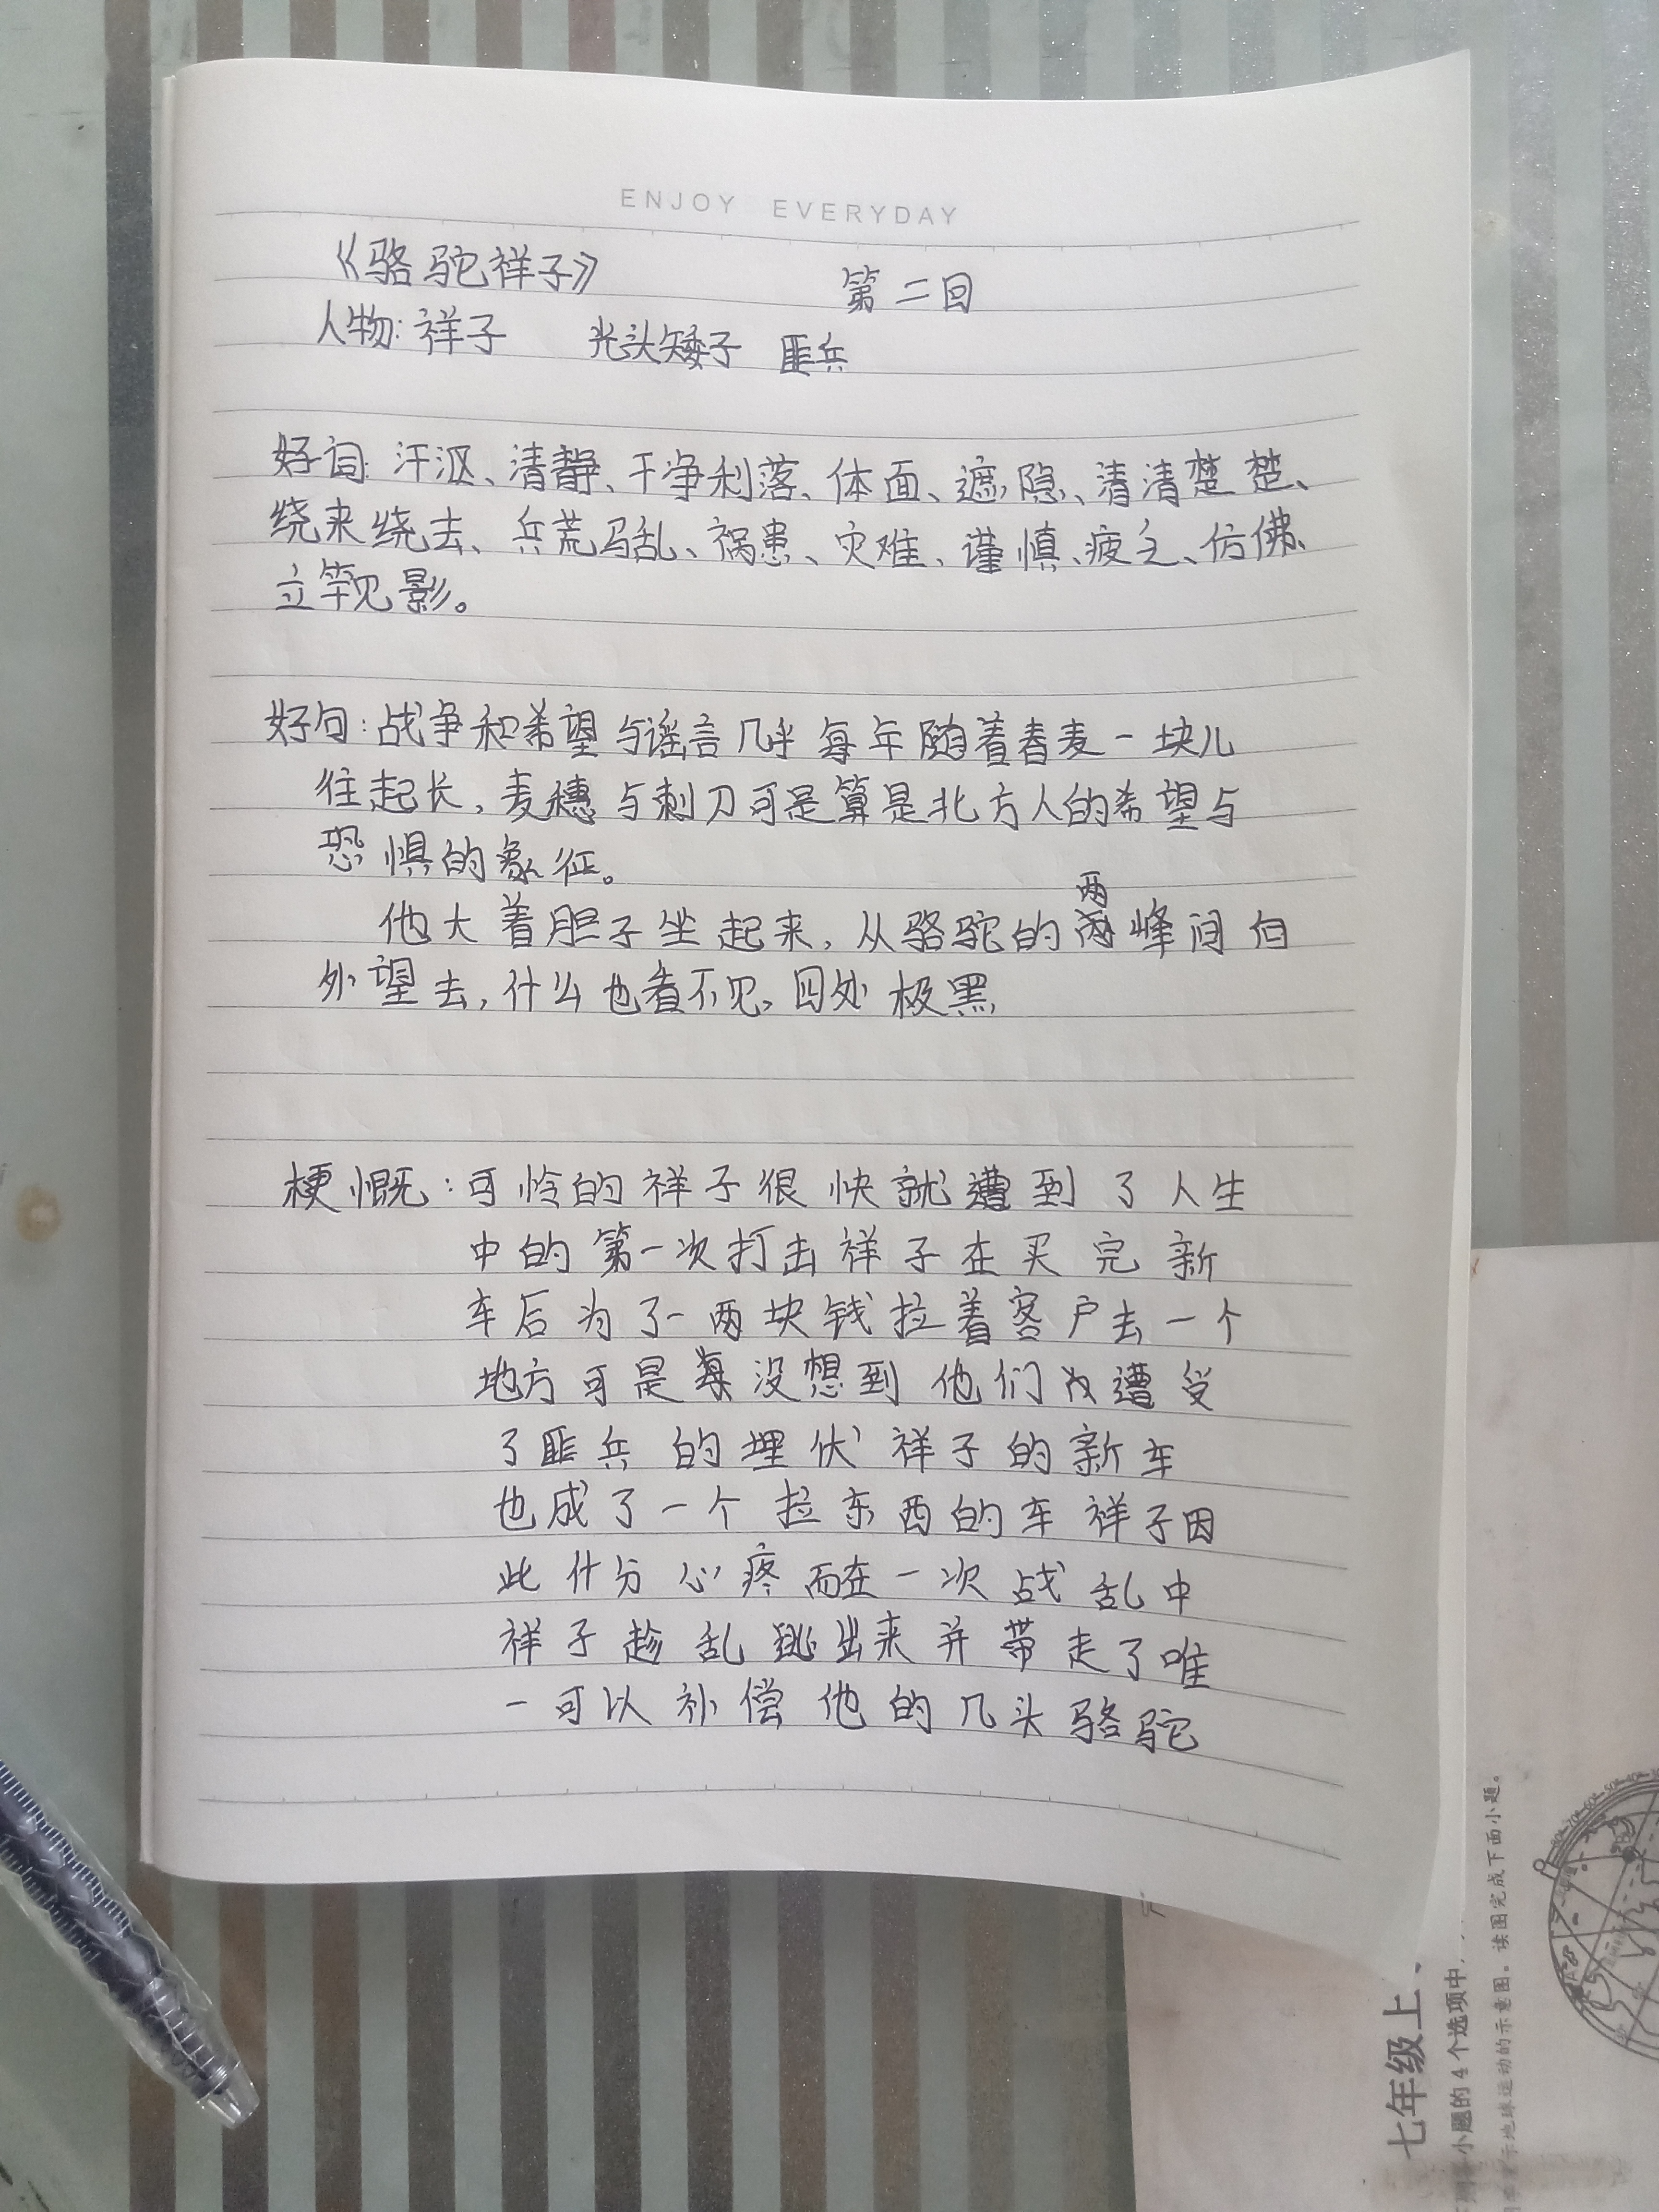 ENJOY EVERYDAY
《骆驼祥子》 第二回
人物:祥子 光头矮子 匪兵
好词:汗沤、清静、干净利落、体面、遮隐、清清楚楚、
绕来绕去、兵荒马乱、祸患、灾难、谨慎、疲乏、仿佛、
立竿见影。
好句:战争和希望与谣言几乎每年随着春麦一块儿
往起长,麦穗与刺刀可是算是北方人的希望与
恐惧的象征。
他大着胆子坐起来,从骆驼的两峰间向
外望去,什么也看不见,四处极黑,
梗慨:可怜的祥子很快就遭到了人生
中的第一次打击祥子在买完新
车后为了一两块钱拉着客户去一个
地方可是没想到他们遭受
了匪兵的埋伏祥子的新车
也成了一个拉东西的车祥子因
此什分心疼而在一次战乱中
祥子趁乱逃出来并带走了唯
一可以补偿他的几头骆驼
七年级上
小题的4个选项中,
示地球运动的示意图。读图完成下面小题。